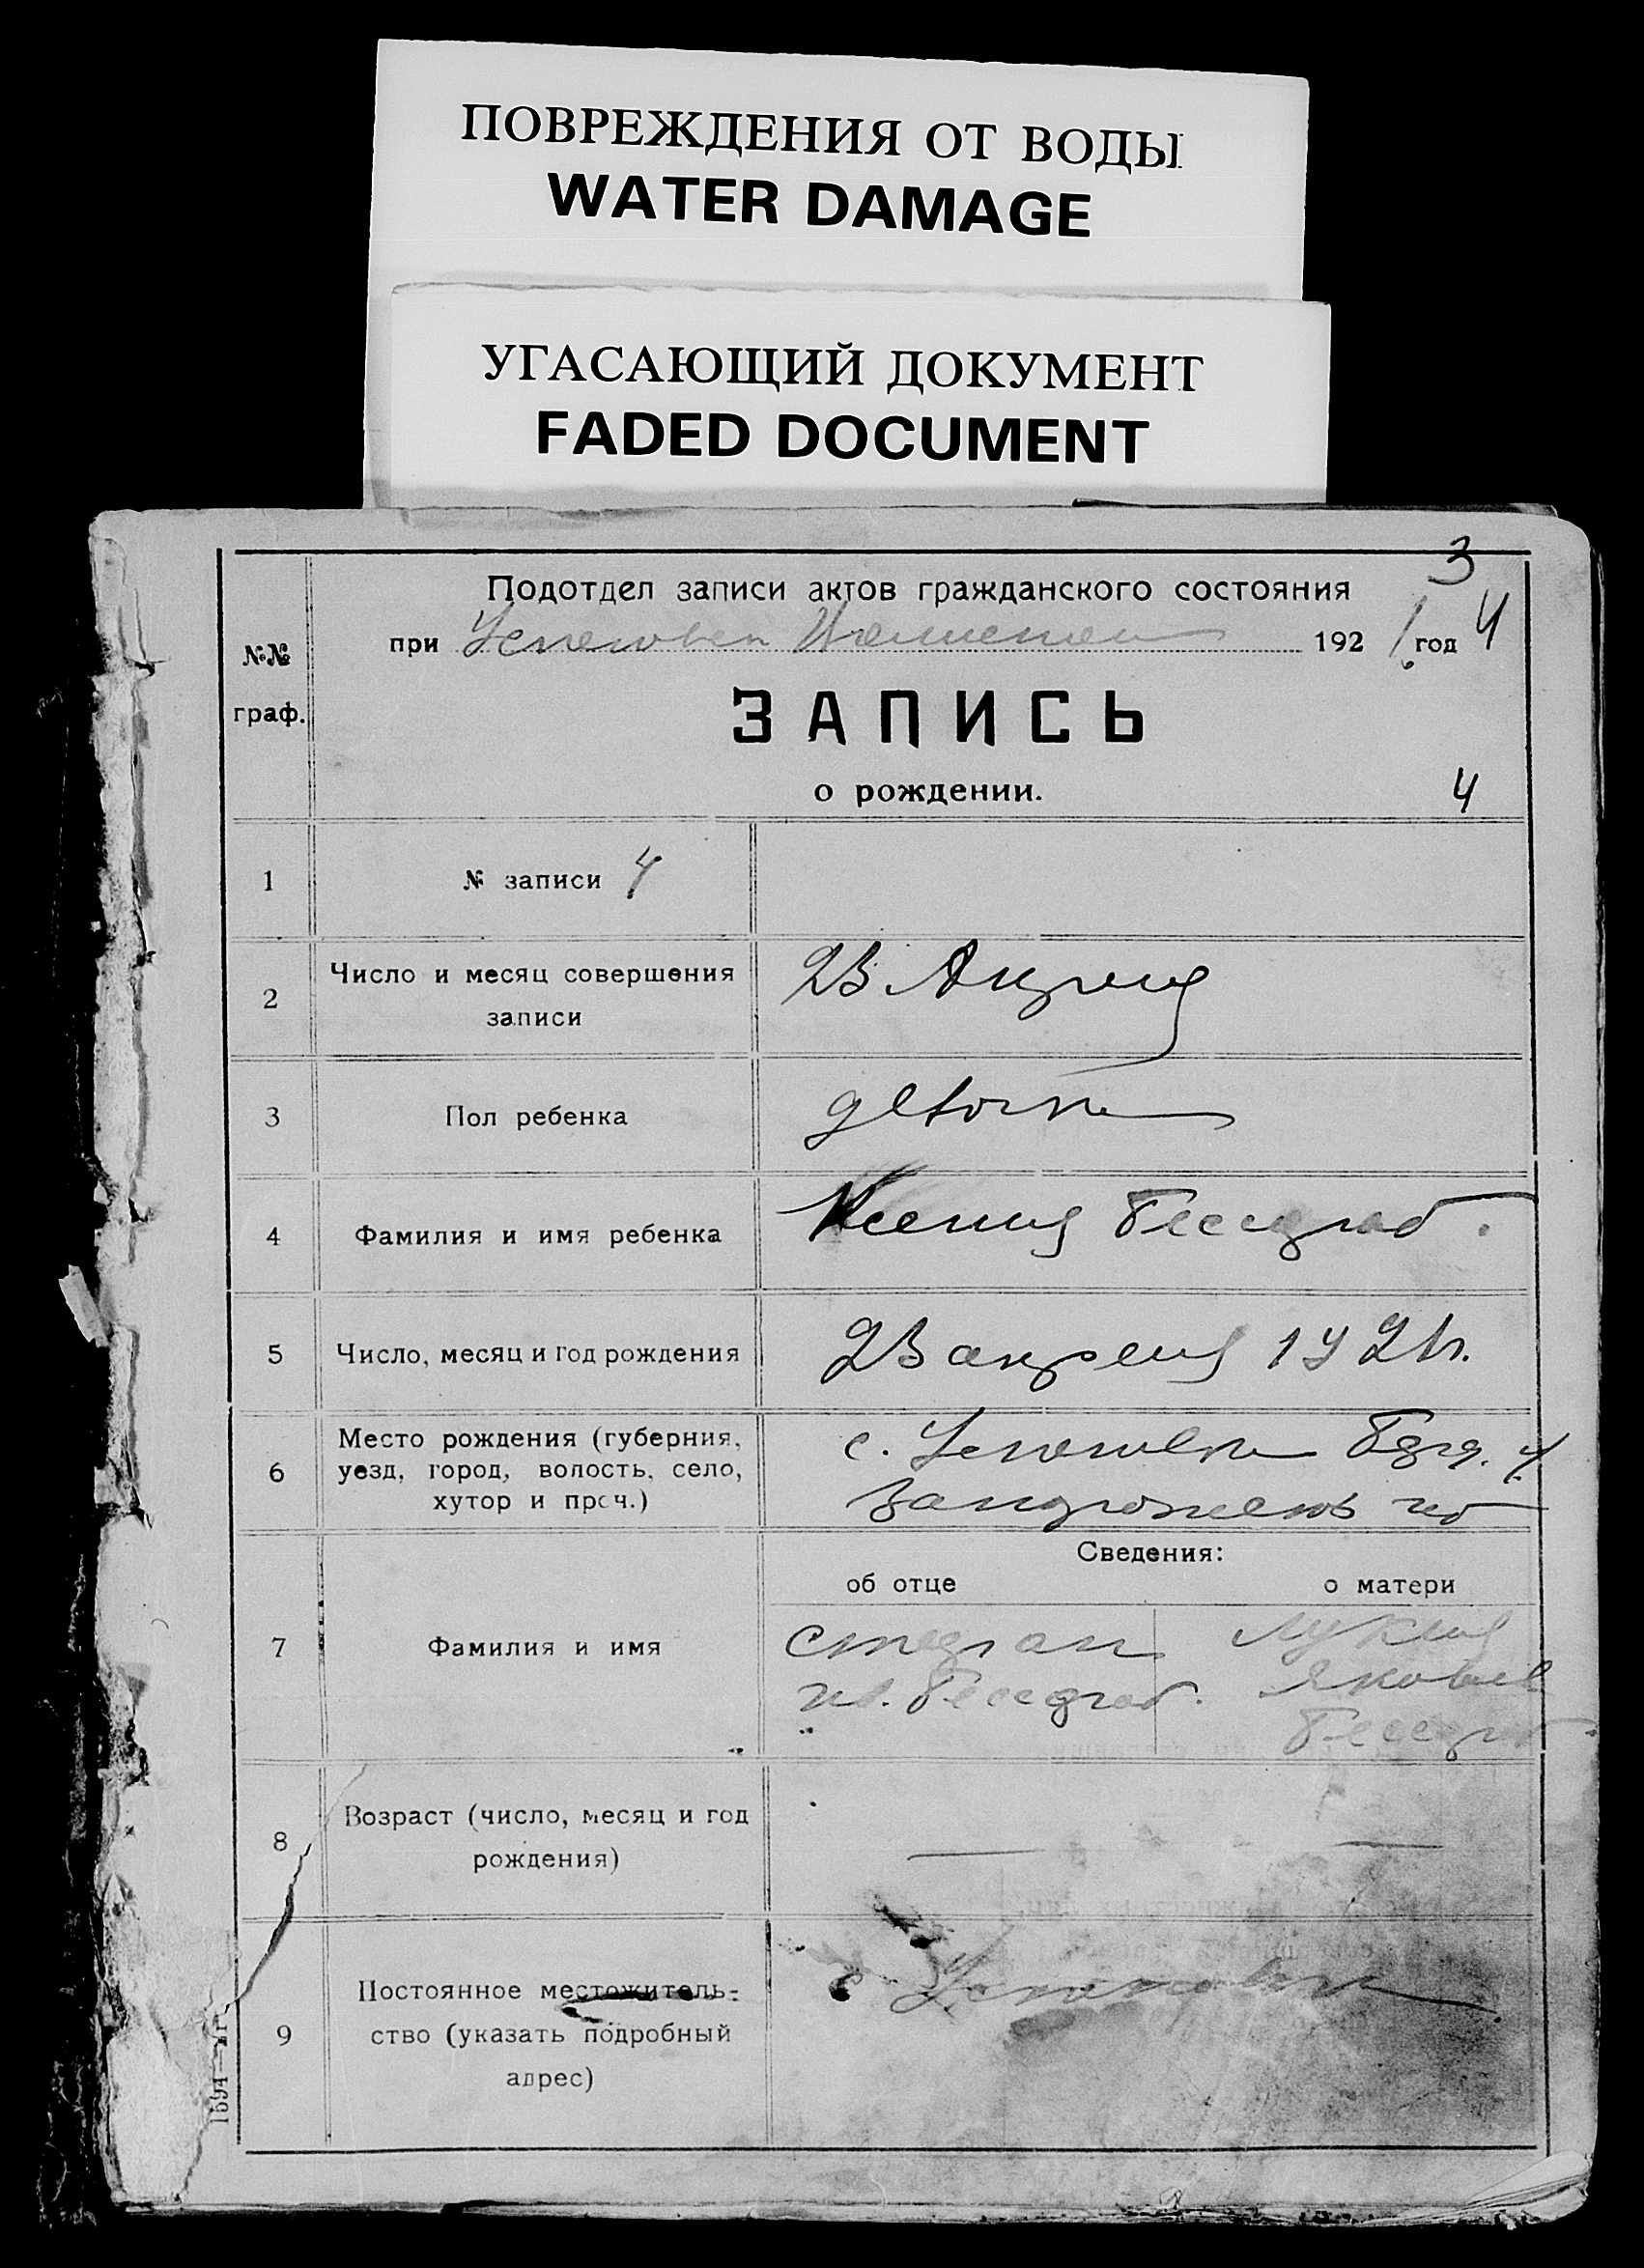 ПОВРЕЖДЕНИЯ ОТ ВОДЫ
WATER DAMAGE
УГАСАЮЩИЙ ДОКУМЕНТ
FADED DOCUMENT
3
Подотдел записи актов гражданского состояния
при 1921 год 4
№№
граф.
ЗАПИСЬ
о рождении.
4
1 № записи 4
2 Число и месяц совершения
записи
23 Апреля
3 Пол ребенка
4 Фамилия и имя ребенка Ксения
5 Число, месяц и год рождения 23 апреля 1921 г.
6 Место рождения (губерния,
уезд, город, волость, село,
хутор и проч.)
с. Успеновка
Сведения:
об отце о матери
7 Фамилия и имя
Степан
8 Возраст (число, месяц и год
рождения)
— —
9 Постоянное местожитель-
ство (указать подробный
адрес)
с Успеновка